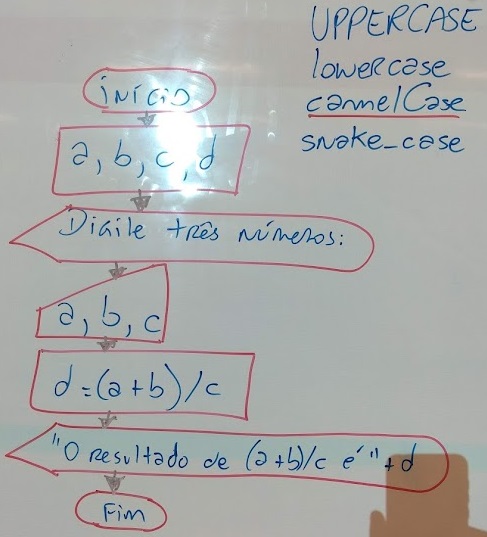 UPPERCASE
lowercase
cammelCase
snake_case
início
a, b, c, d
Digite três números:
a, b, c
d=(a+b)/c
"O resultado de (a+b)/c é"+d
Fim